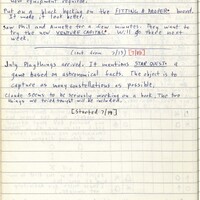 new equipment required.
Put on a black backing on the FITTING A DRAPER board.
It made it look better.
Saw Phil and Annette for a few minutes. They want to
try the new VENTURE CAPITAL. Will do there next
week.
(ind from 7/17) [7/19]
July Playthings arrived. It mentions STAR QUEST: a
game based on astronomical facts. The object is to
capture as many constellations as possible.
Claude seems to be seriously working on a book. The two
things we tried will be included.
[Started 7/19]